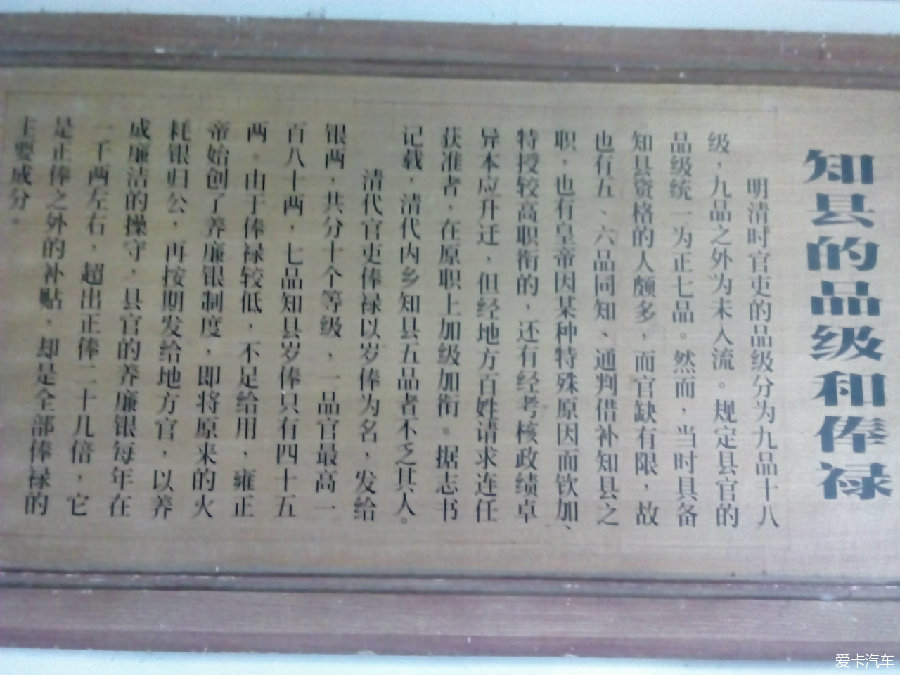 知县的品级和俸禄
明清时官吏的品级分为九品十八
级，九品之外为未入流。规定县官的
品级统一为正七品。然而，当时具备
知县资格的人颇多，而官缺有限，故
也有五、六品同知、通判借补知县之
职，也有皇帝因某种特殊原因而钦加、
特授较高职衔的，还有经考核政绩卓
异本应升迁，但经地方百姓请求连任
获准者，在原职上加级加衔。据志书
记载，清代内乡知县五品者不乏其人。
清代官吏俸禄以岁俸为名，发给
银两，共分十个等级，一品官最高一
百八十两，七品知县岁俸只有四十五
两。由于俸禄较低，不足给用，雍正
帝始创了养廉银制度，即将原来的火
耗银归公，再按期发给地方官，以养
成廉洁的操守，县官的养廉银每年在
一千两左右，超出正俸二十几倍，它
是正俸之外的补贴，却是全部俸禄的
主要成分。
爱卡汽车